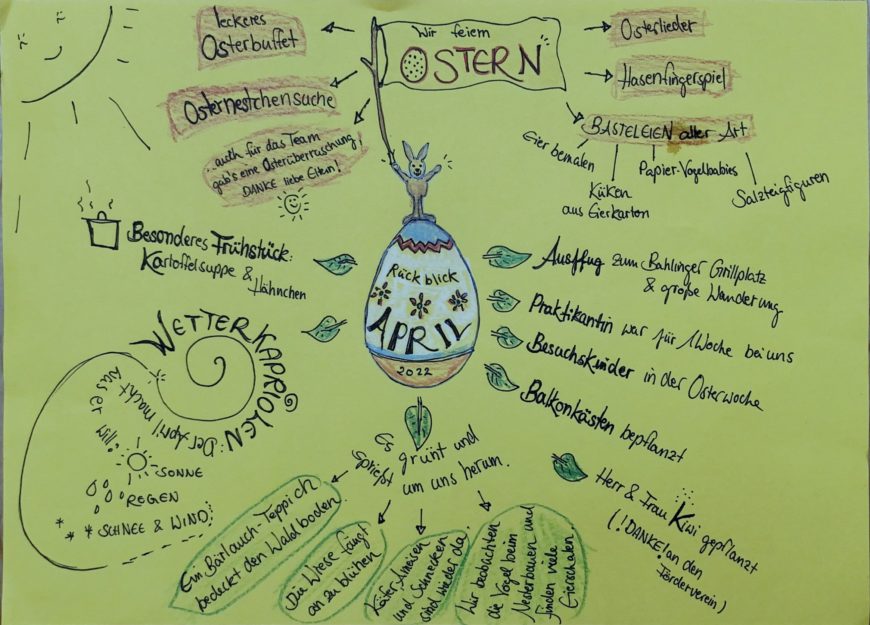 Wir feiern
OSTERN
leckeres
Osterbuffet
Osternestchensuche
...auch für das Team
gab's eine Osterüberraschung!
DANKE liebe Eltern!
Osterlieder
Hasenfingerspiel
BASTELEIEN aller Art
Eier bemalen
Küken
aus Eierkarton
Papier-Vogelbabies
Salzteigfiguren
Besonderes Frühstück:
Kartoffelsuppe &
Hähnchen
Rückblick
APRIL
2022
Ausflug zum Bahlinger Grillplatz
& große Wanderung
Praktikantin war für 1 Woche bei uns
Besuchskinder in der Osterwoche
Balkonkästen bepflanzt
Herr & Frau Kiwi gepflanzt
(!DANKE! an den
Förderverein)
WETTERKAPRIOLEN: Der April macht
was er will!!!
SONNE
REGEN
SCHNEE & WIND
Es grünt und
sprießt um uns herum.
Ein Bärlauch-Teppich
bedeckt den Waldboden
Die Wiese fängt
an zu blühen
Käfer, Ameisen
und Schnecken
sind wieder da.
Wir beobachten
die Vögel beim
Nesterbauen und
finden viele
Eierschalen.